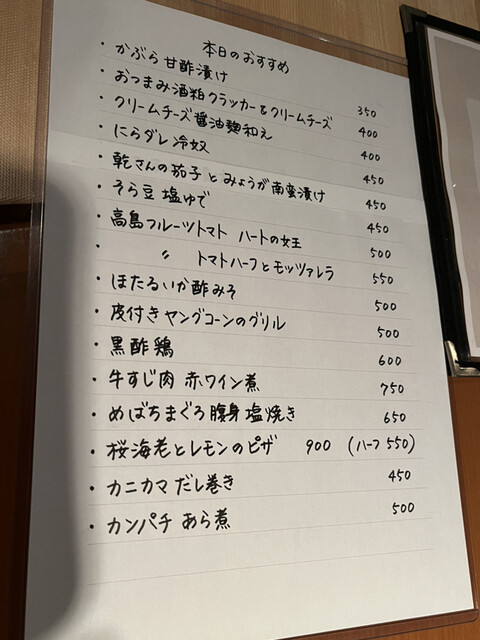 本日のおすすめ
・かぶら甘酢漬け 350
・おつまみ酒粕クラッカー&クリームチーズ 400
・クリームチーズ醤油麹和え 400
・にらダレ冷奴 450
・乾さんの茄子とみょうが南蛮漬け 450
・そら豆塩ゆで 450
・高島フルーツトマト ハートの女王 500
・〃 トマトハーフとモッツァレラ 550
・ほたるいか酢みそ 500
・皮付きヤングコーンのグリル 500
・黒酢鶏 600
・牛すじ肉 赤ワイン煮 750
・めばちまぐろ腹身塩焼き 650
・桜海老とレモンのピザ 900 (ハーフ 550)
・カニカマだし巻き 450
・カンパチあら煮 500